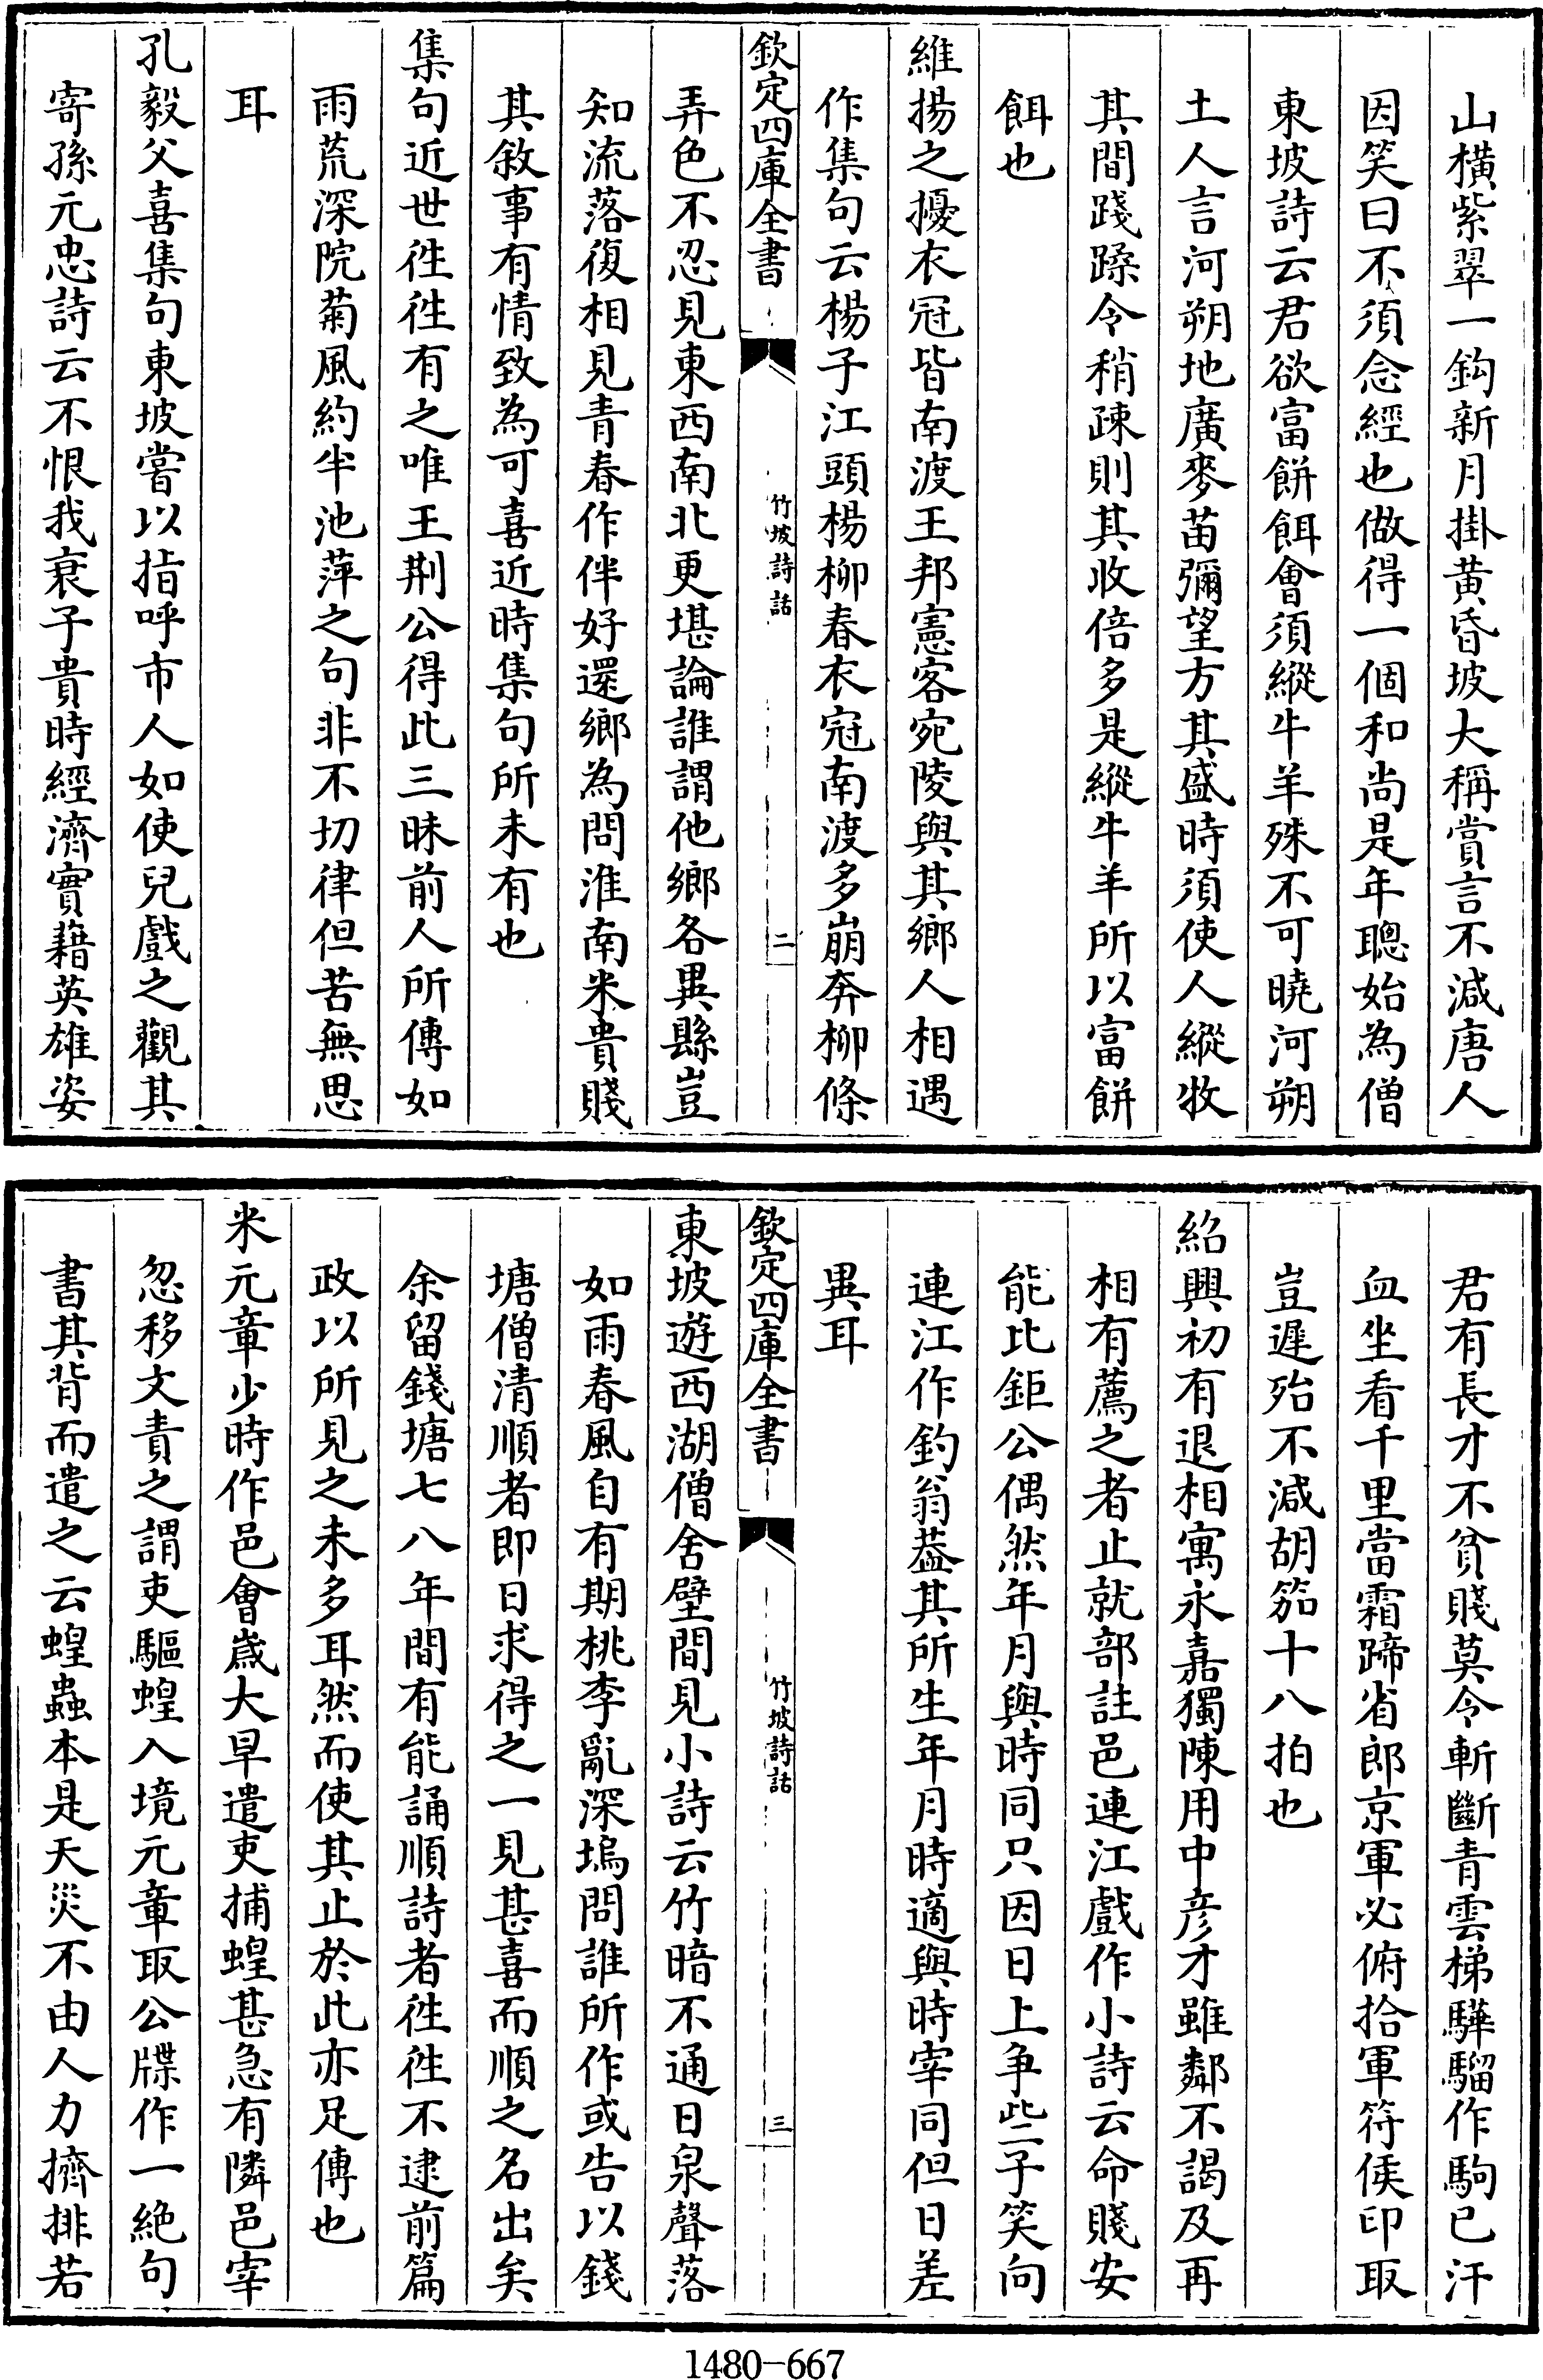 山橫紫翠一鈎新月掛黄昏坡大稱賞言不減唐人
因笑曰不須念經也做得一個和尚是年聰始為僧
東坡詩云君欲富餅餌會須縱牛羊殊不可曉河朔
土人言河朔地廣麥苗彌望方其盛時須使人縱牧
其間踐蹂令稍疎則其收倍多是縱牛羊所以富餅
餌也
維揚之擾衣冠皆南渡王邦憲客宛陵與其鄉人相遇
作集句云楊子江頭楊柳春衣冠南渡多崩奔柳條
欽定四庫全書
竹坡詩話
二
弄色不忍見東西南北更堪論誰謂他鄉各異縣豈
知流落復相見青春作伴好還鄉為問淮南米貴賤
其敘事有情致為可喜近時集句所未有也
集句近世徃徃有之唯王荆公得此三昧前人所傳如
雨荒深院菊風約半池萍之句非不切律但苦無思
耳
孔毅父喜集句東坡嘗以指呼市人如使兒戲之觀其
寄孫元忠詩云不恨我衰子貴時經濟實藉英雄姿
君有長才不貧賤莫令斬斷青雲梯驊騮作駒已汗
血坐看千里當霜蹄省郎京軍必俯拾軍符侯印取
豈遲殆不減胡笳十八拍也
紹興初有退相寓永嘉獨陳用中彦才雖鄰不謁及再
相有薦之者止就部註邑連江戲作小詩云命賤安
能比鉅公偶然年月與時同只因日上争些子笑向
連江作釣翁葢其所生年月時適與時宰同但日差
異耳
欽定四庫全書
竹坡詩話
三
東坡遊西湖僧舍壁間見小詩云竹暗不通日泉聲落
如雨春風自有期桃李亂深塢問誰所作或告以錢
塘僧清順者即日求得之一見甚喜而順之名出矣
余留錢塘七八年間有能誦順詩者徃徃不逮前篇
政以所見之未多耳然而使其止於此亦足傳也
米元章少時作邑會歳大旱遣吏捕蝗甚急有隣邑宰
忽移文責之謂吏驅蝗入境元章取公牒作一絶句
書其背而遣之云蝗蟲本是天災不由人力擠排若
1480-667